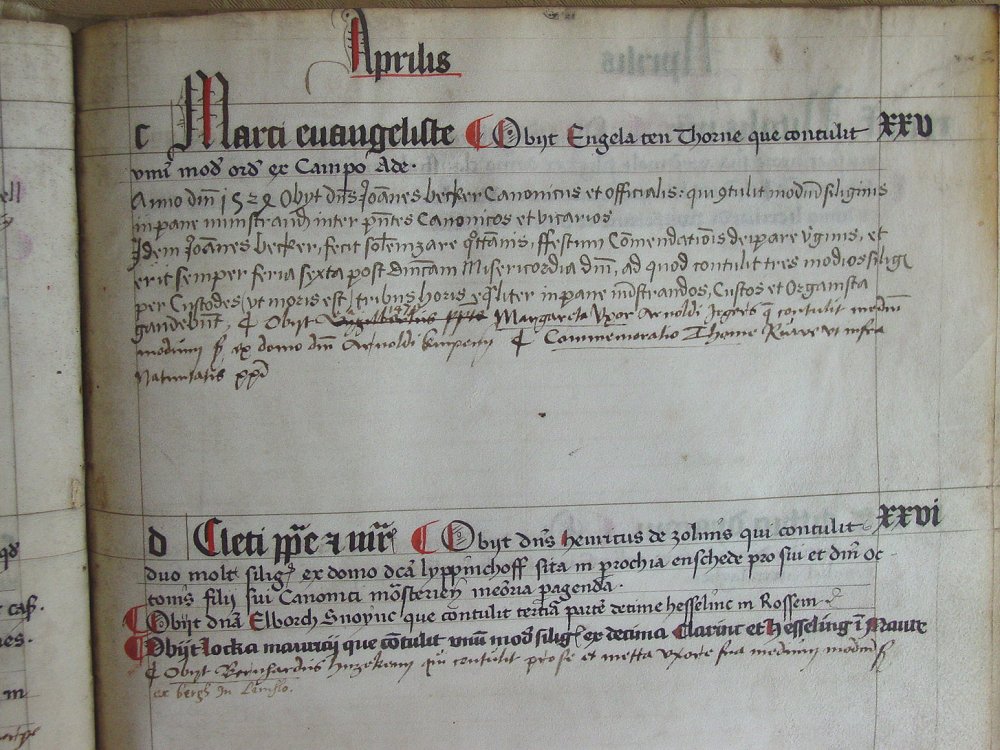 Aprilis
c Marci euangeliste Obijt Engela ten Thorne que contulit xxv
vnū mod ord ex Campo Ade.
Anno dm̄ 152 Obijt dn̄s Joānes becker Canonicus et officialis: qui 9tulit modiū siliginis
in pane ministrand inter pn̄tes Canonicos et vicarios
Idem Joānes becker, fecit solēnizare qͦttannis, ffestum Cōmendatiōis deipare v̓ginis, et
erit semper feria sexta post dm̄cam Misericordia dm̄, ad quod contulit tres modios silig
per Custodes (vt moris est) tribus horis eq̄liter in pane mīstrandos, Custos et Organista
gaudebūt, Obijt Margareta Vxor Arnoldi q̄ contulit mediū
modium s ex domo dm̄ Arnoldi Commemoratio Thome et infra
Natiuitatis xp̄i
d Cleti pp̄e et mr̄ Obijt dn̄s henricus de zolms qui contulit xxvi
duo molt silig ex domo dc̄a lyppinchoff sita in prochia enschede pro sui et dm̄ Oc
tonis filij sui Canonici mōsterieñ meōria pagenda.
Obijt dn̄a Elborch Snoync que contulit terciā partē decime hesselinc in Rossem
Obijt locka mauricij que cōtulit vnū mod silig ex decima Clarinc et hesseling ī
Obijt Bernhardus qui contulit pro se et metta vxore sua medium modiū s
ex in